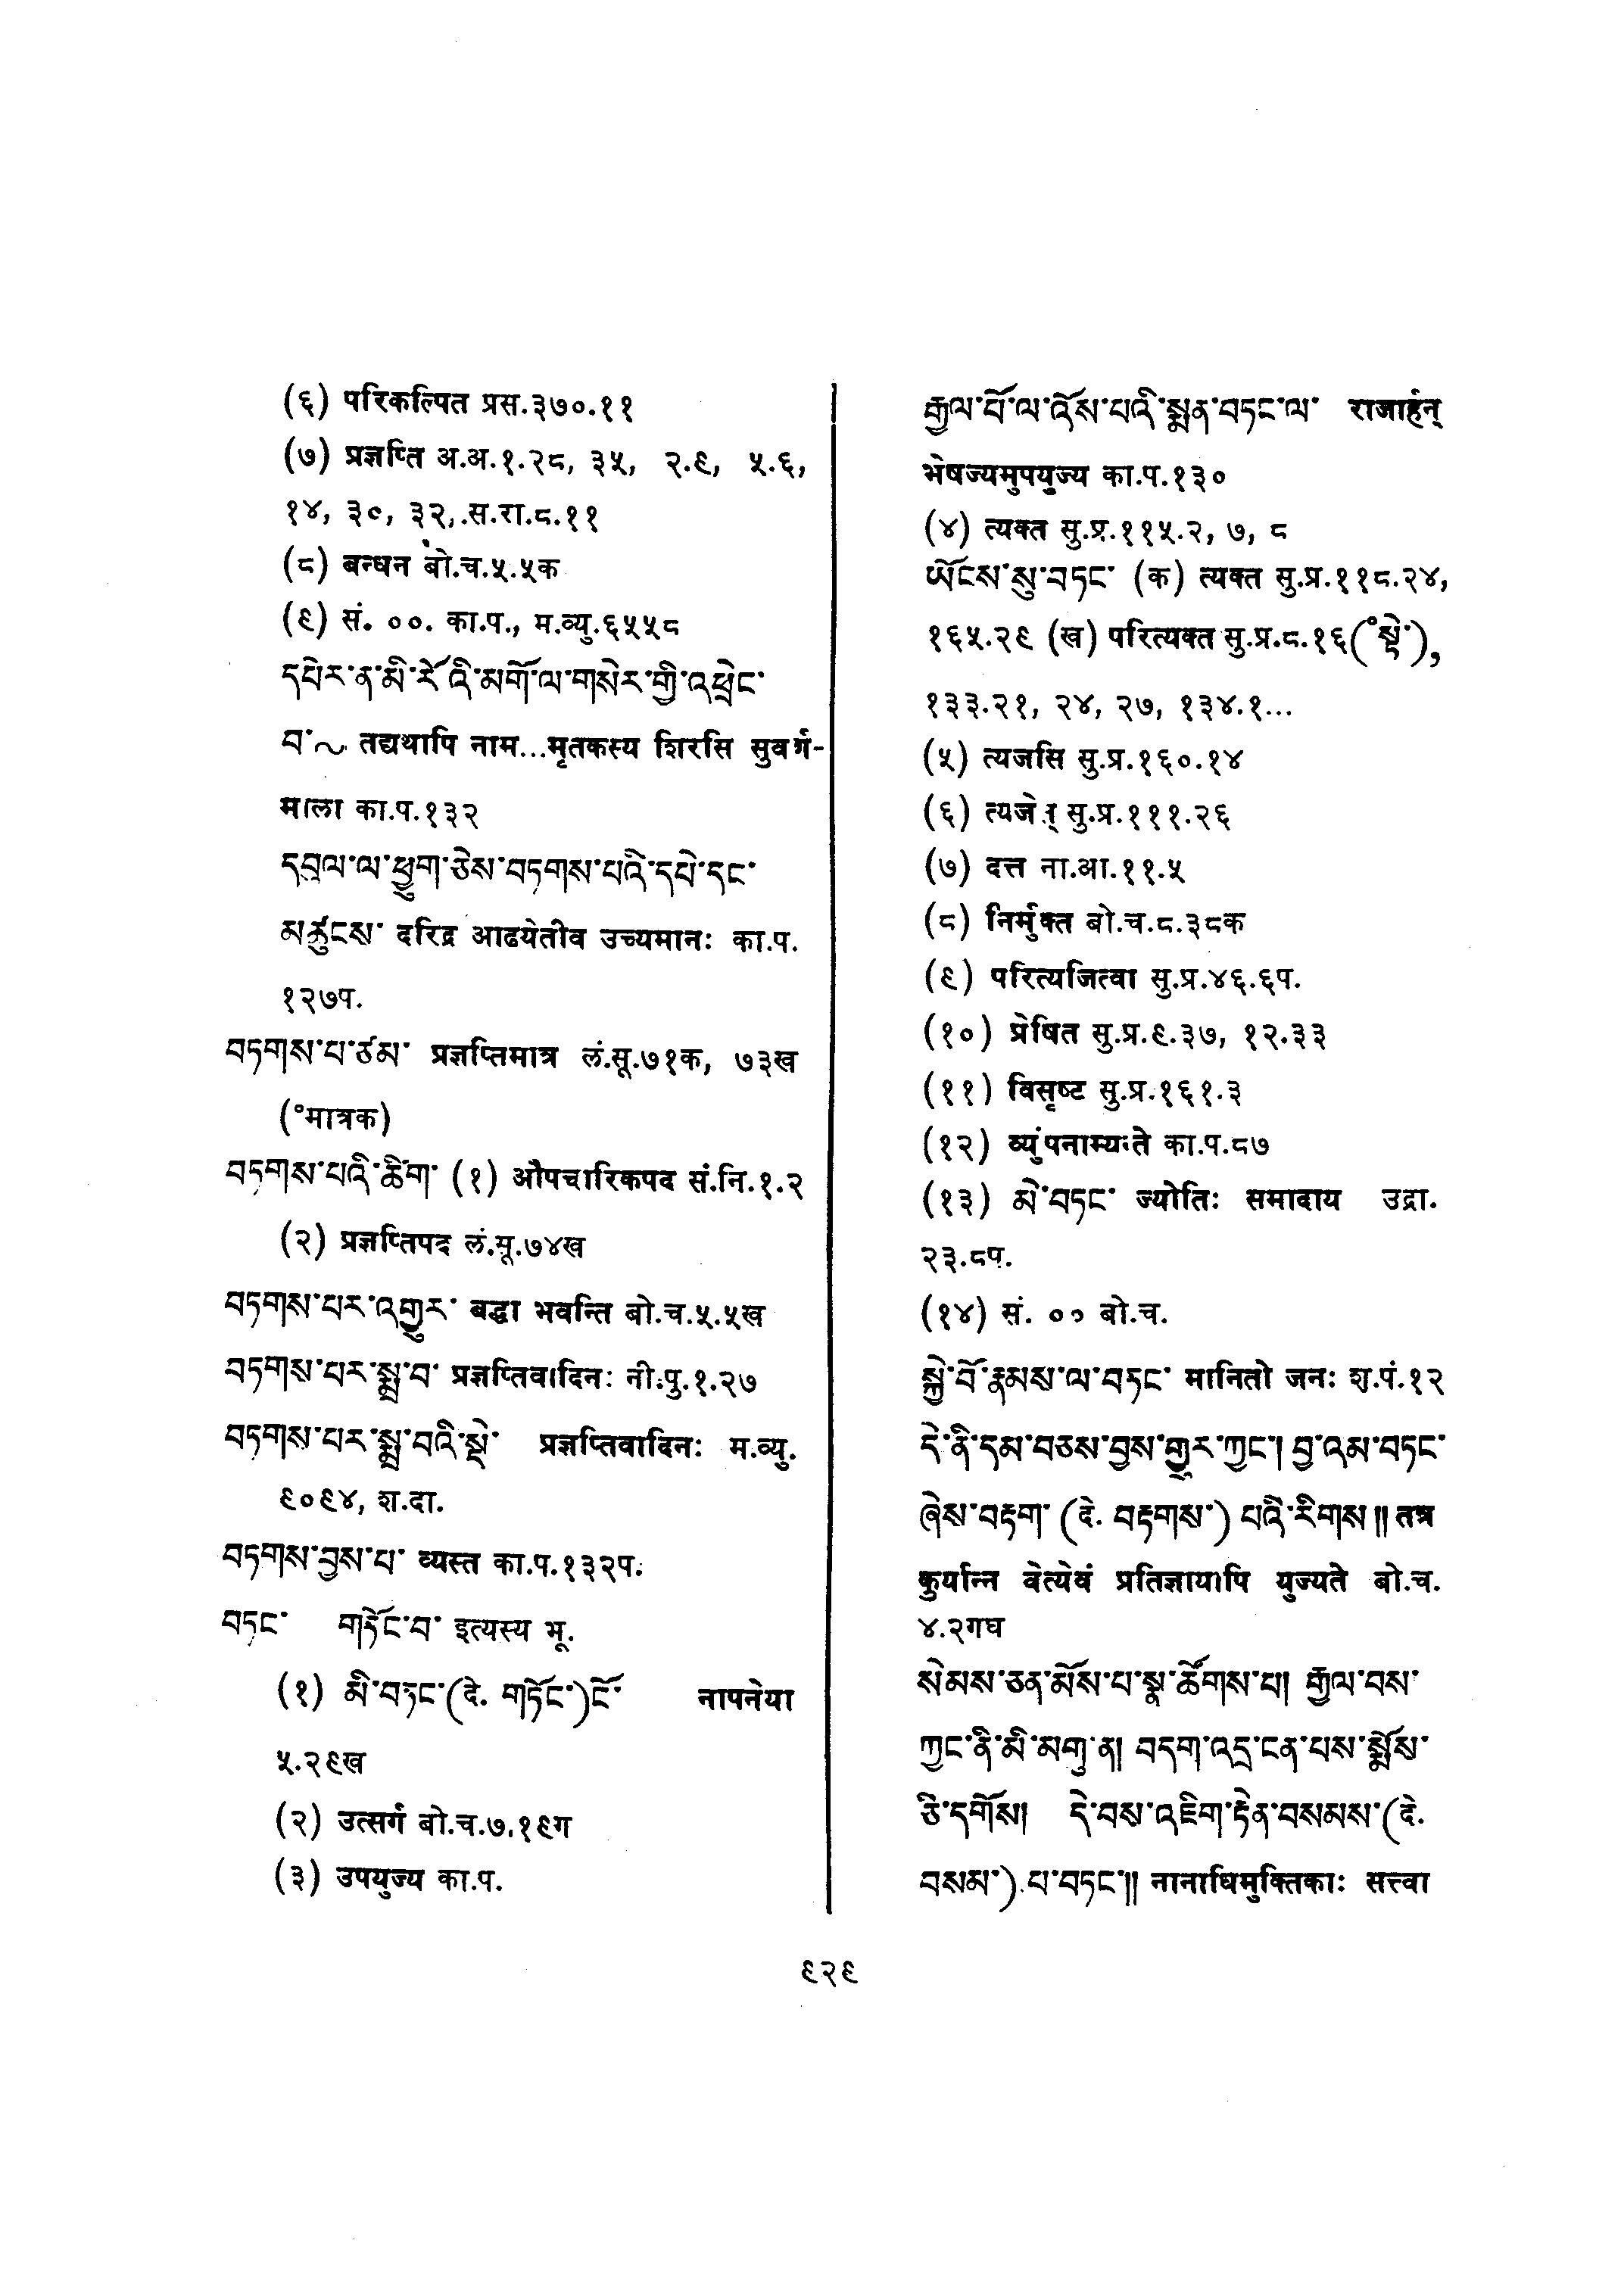 (६) परिकल्पित प्रस.३७०.११
(७) प्रज्ञप्ति अ.अ.१.२८, ३५, २.९, ५.६,
१४, ३०, ३२, स.रा.८.११
(८) बन्धन बो.च.५.५क
(९) सं. ००. का.प., म.व्यु.६५५८
དཔེར་ན་མི་རོའི་མགོ་ལ་གསེར་གྱི་འཕྲེང་
བ་~ तद्यथापि नाम...मृतकस्य शिरसि सुवर्ण-
माला का.प.१३२
དབུལ་ལ་ཕྱུག་ཅེས་བཏགས་པའི་དཔེ་དང་
མཚུངས་ दरिद्र आढयेतीव उच्यमानः का.प.
१२७प.
བཏགས་པ་ཙམ་ प्रज्ञप्तिमात्र लं.सू.७१क, ७३ख
(°मात्रक)
བཏགས་པའི་ཚིག་ (१) औपचारिकपद सं.नि.१.२
(२) प्रज्ञप्तिपद लं.सू.७४ख
བཏགས་པར་འགྱུར་ बद्धा भवन्ति बो.च.५.५ख
བཏགས་པར་སྨྲ་བ་ प्रज्ञप्तिवादिनः नी.पु.१.२७
བཏགས་པར་སྨྲ་བའི་སྡེ་ प्रज्ञप्तिवादिनः म.व्यु.
९०९४, श.दा.
བཏགས་བྱས་པ་ व्यस्त का.प.१३२प.
བཏང་ གཏོང་བ་ इत्यस्य भू.
(१) མི་བཏང་(दे. གཏོང་)ངོ་ नापनेया
५.२९ख
(२) उत्सर्ग बो.च.७.१९ग
(३) उपयुज्य का.प.
རྒྱལ་པོ་ལ་འོས་པའི་སྨན་བཏང་ལ་ राजार्हन्
भेषज्यमुपयुज्य का.प.१३०
(४) त्यक्त सु.प्र.११५.२, ७, ८
ཡོངས་སུ་བཏང་ (क) त्यक्त सु.प्र.११८.२४,
१६५.२९ (ख) परित्यक्त सु.प्र.८.१६(°སྟེ་),
१३३.२१, २४, २७, १३४.१...
(५) त्यजसि सु.प्र.१६०.१४
(६) त्यजेत् सु.प्र.१११.२६
(७) दत्त ना.आ.११.५
(८) निर्मुक्त बो.च.८.३८क
(९) परित्यजित्वा सु.प्र.४६.६प.
(१०) प्रेषित सु.प्र.९.३७, १२.३३
(११) विसृष्ट सु.प्र.१६१.३
(१२) व्युपनाम्यन्ते का.प.८७
(१३) མེ་བཏང་ ज्योतिः समादाय उद्रा.
२३.८प.
(१४) सं. ०० बो.च.
སྐྱེ་བོ་རྣམས་ལ་བཏང་ मानितो जनः शु.पं.१२
དེ་ནི་དམ་བཅས་བྱས་གྱུར་ཀྱང་། བྱ་འམ་བཏང་
ཞེས་བརྟག་ (दे. བརྟགས་) པའི་རིགས།། तत्र
कुर्यान्न वेत्येवं प्रतिज्ञायापि युज्यते बो.च.
४.२गघ
སེམས་ཅན་མོས་པ་སྣ་ཚོགས་པ། རྒྱལ་བས་
ཀྱང་ནི་མི་མགུ་ན། བདག་འདྲ་ངན་པས་སྨོས་
ཅི་དགོས། དེ་བས་འཇིག་རྟེན་བསམས་(दे.
བསམ་) པ་བཏང་།། नानाधिमुक्तिकाः सत्त्वा
९२९